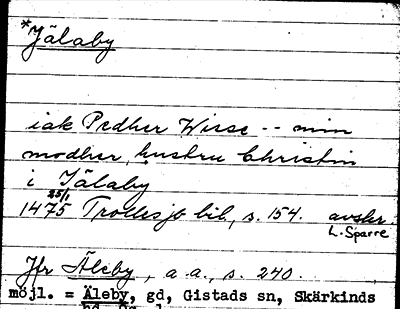 *Jälaby
iak Pedher Wisse -- min
modher, hustru Christin
i Jälaby
25/1
1475 Trollesjö bil, s. 154. avskr.
L. Sparre
Jfr Äleby, a.a., s. 240.
möjl. = Äleby, gd, Gistads sn, Skärkinds
hd